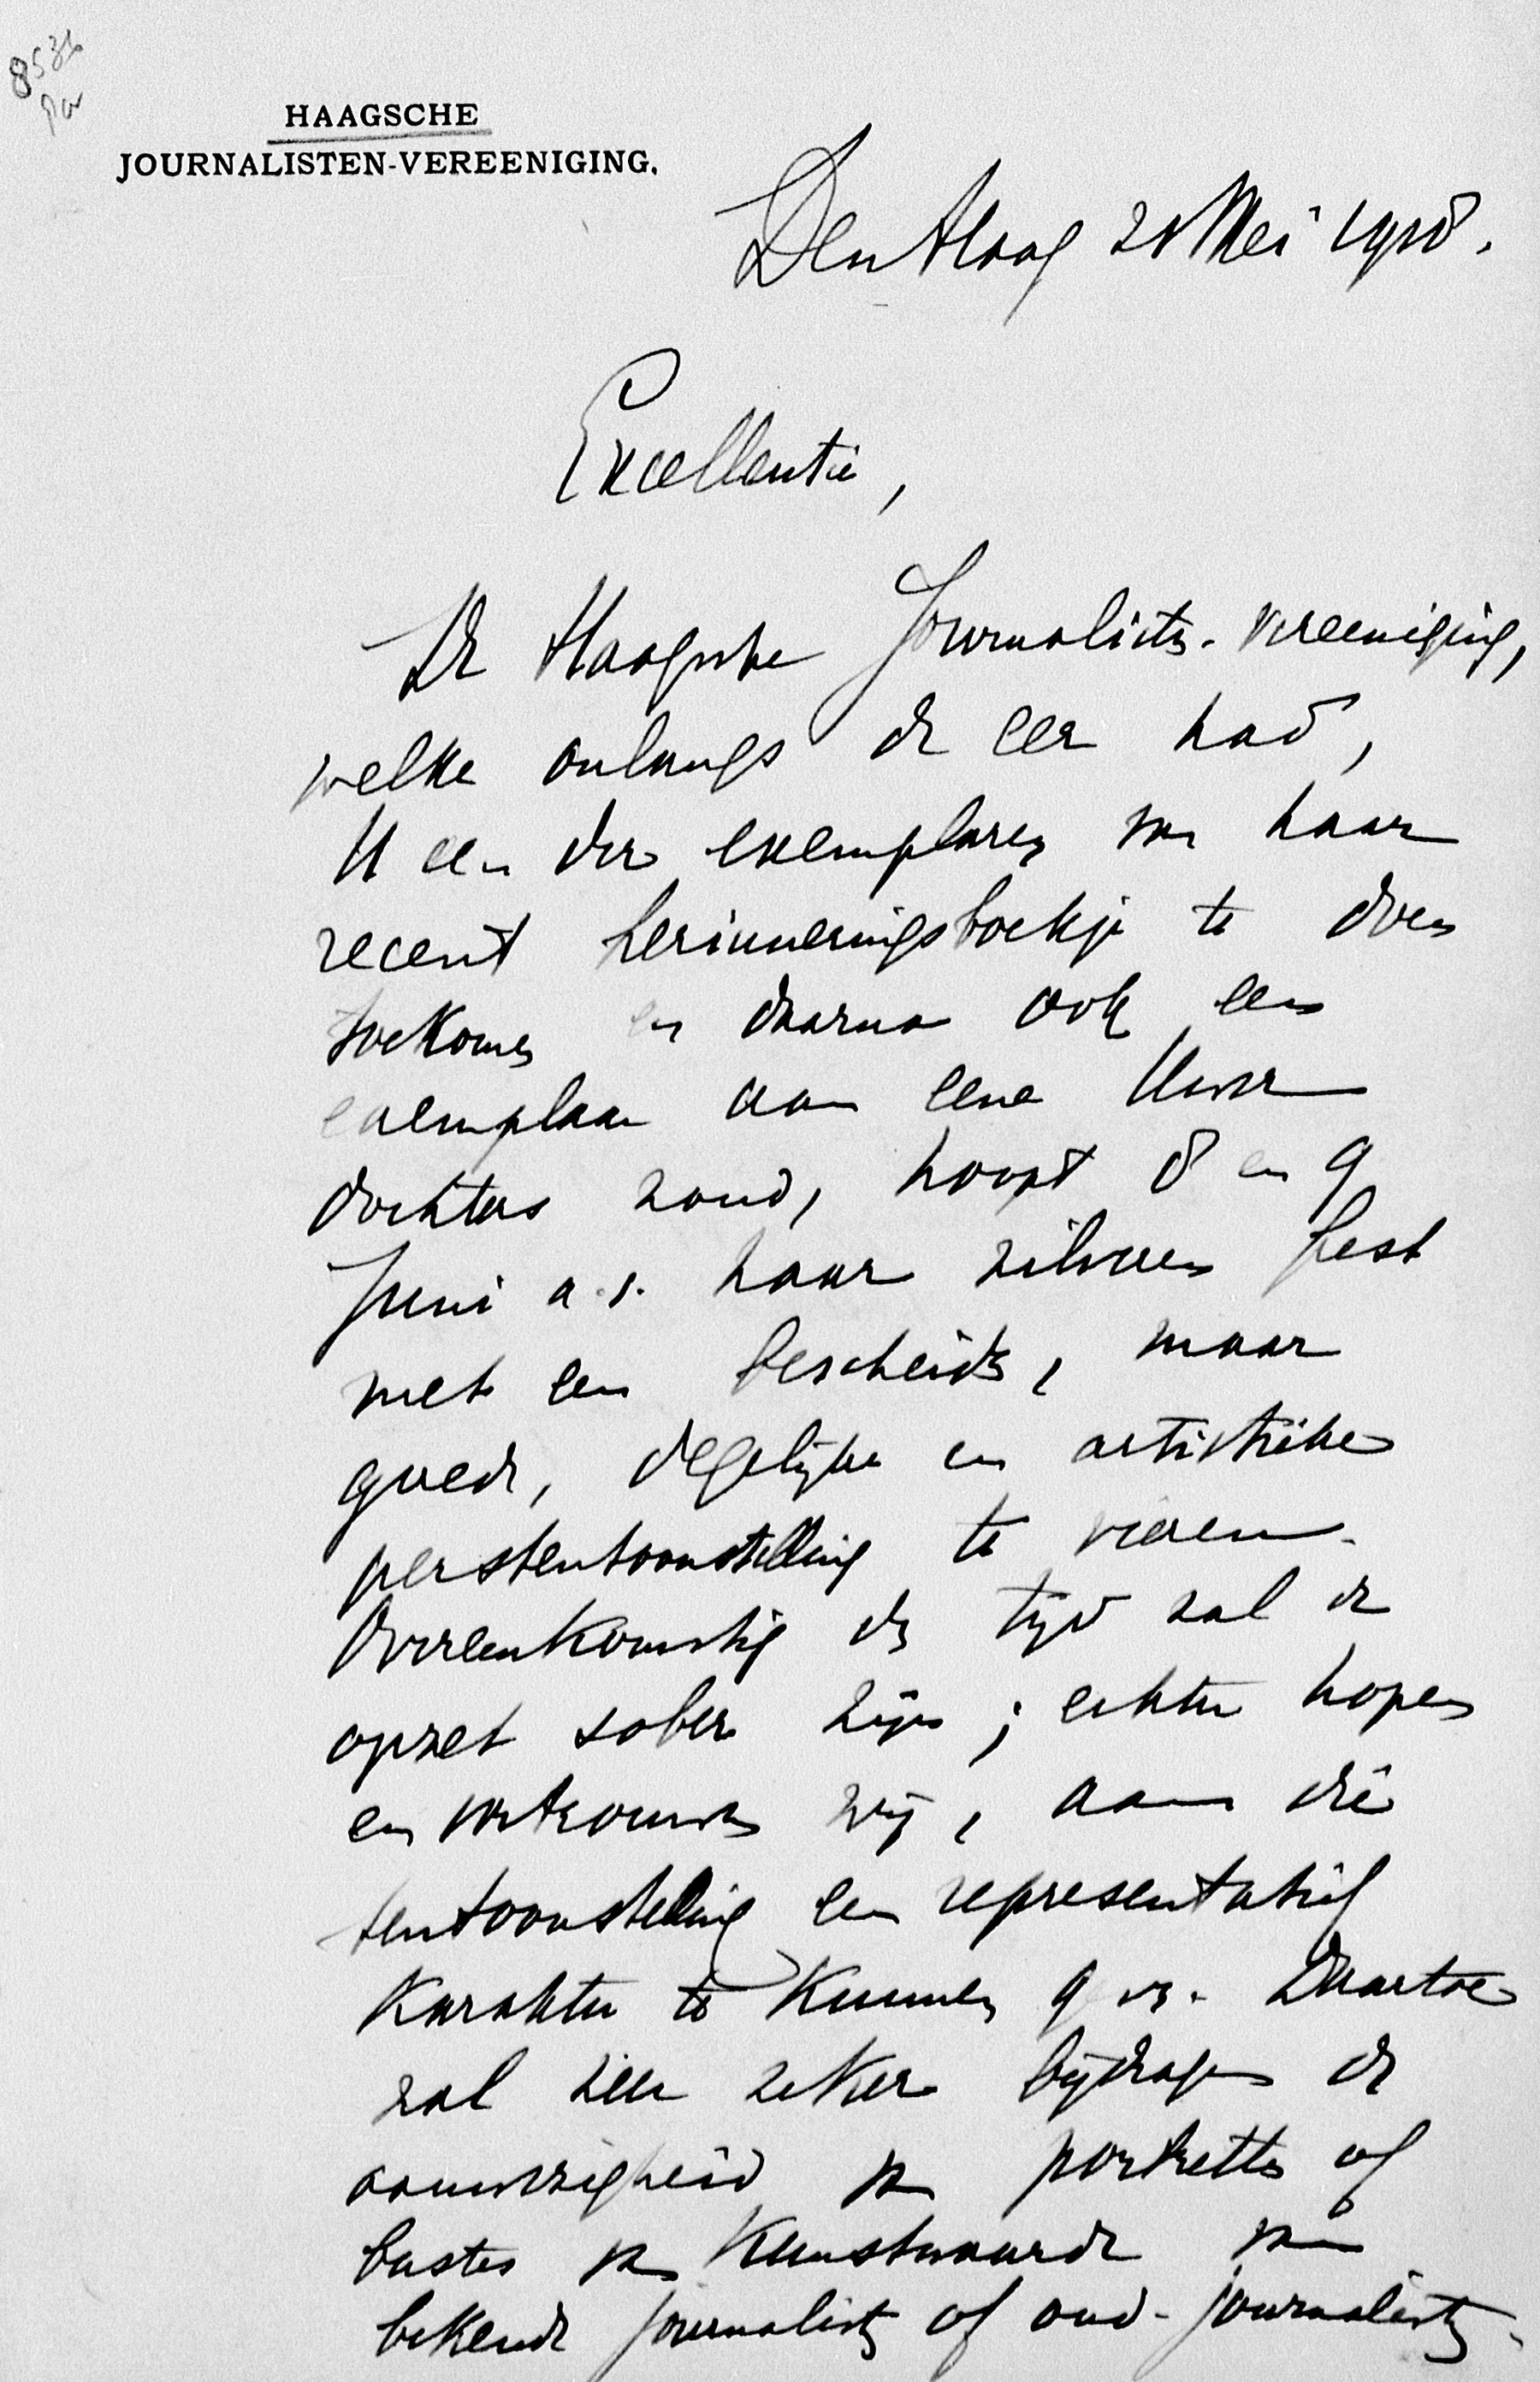 8536
HAAGSCHE
JOURNALISTEN-VEREENIGING.
Den Haag 21 Mei 1918.
Excellentie,
De Haagsche Journalisten-Vereeniging,
welke onlangs de eer had,
U een der exemplaren van haar
recent herinneringsboekje te doen
toekomen en daarna ook een
exemplaar aan eene Uwer
dochters zond, hoopt 8 en 9
Juni a.s. haar zilveren feest
met een bescheiden, maar
goede, degelijke en artistieke
perstentoonstelling te vieren.
Overeenkomstig den tijd zal de
opzet sober zijn; echter hopen
en vertrouwen wij, aan die
tentoonstelling een representatief
karakter te kunnen geven. Daartoe
zal zeer zeker bijdragen de
aanwezigheid van portretten of
bustes van kunstwaarde van
bekende journalisten of oud-journalisten.